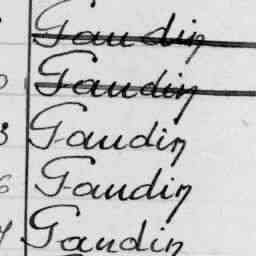 Gaudin
Gaudin
3 Gaudin
6 Gaudin
Gaudin